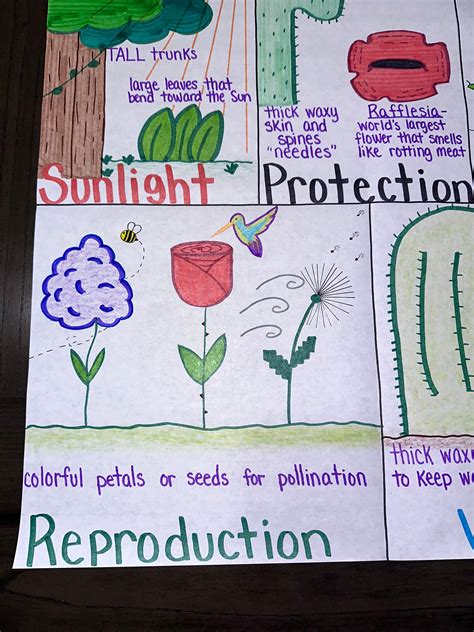 TALL trunks
large leaves that
bend toward the Sun
Sunlight
thick waxy
skin and
spines
"needles"
Rafflesia-
world's largest
flower that smells
like rotting meat
Protection
colorful petals or seeds for pollination
Reproduction
thick
to keep